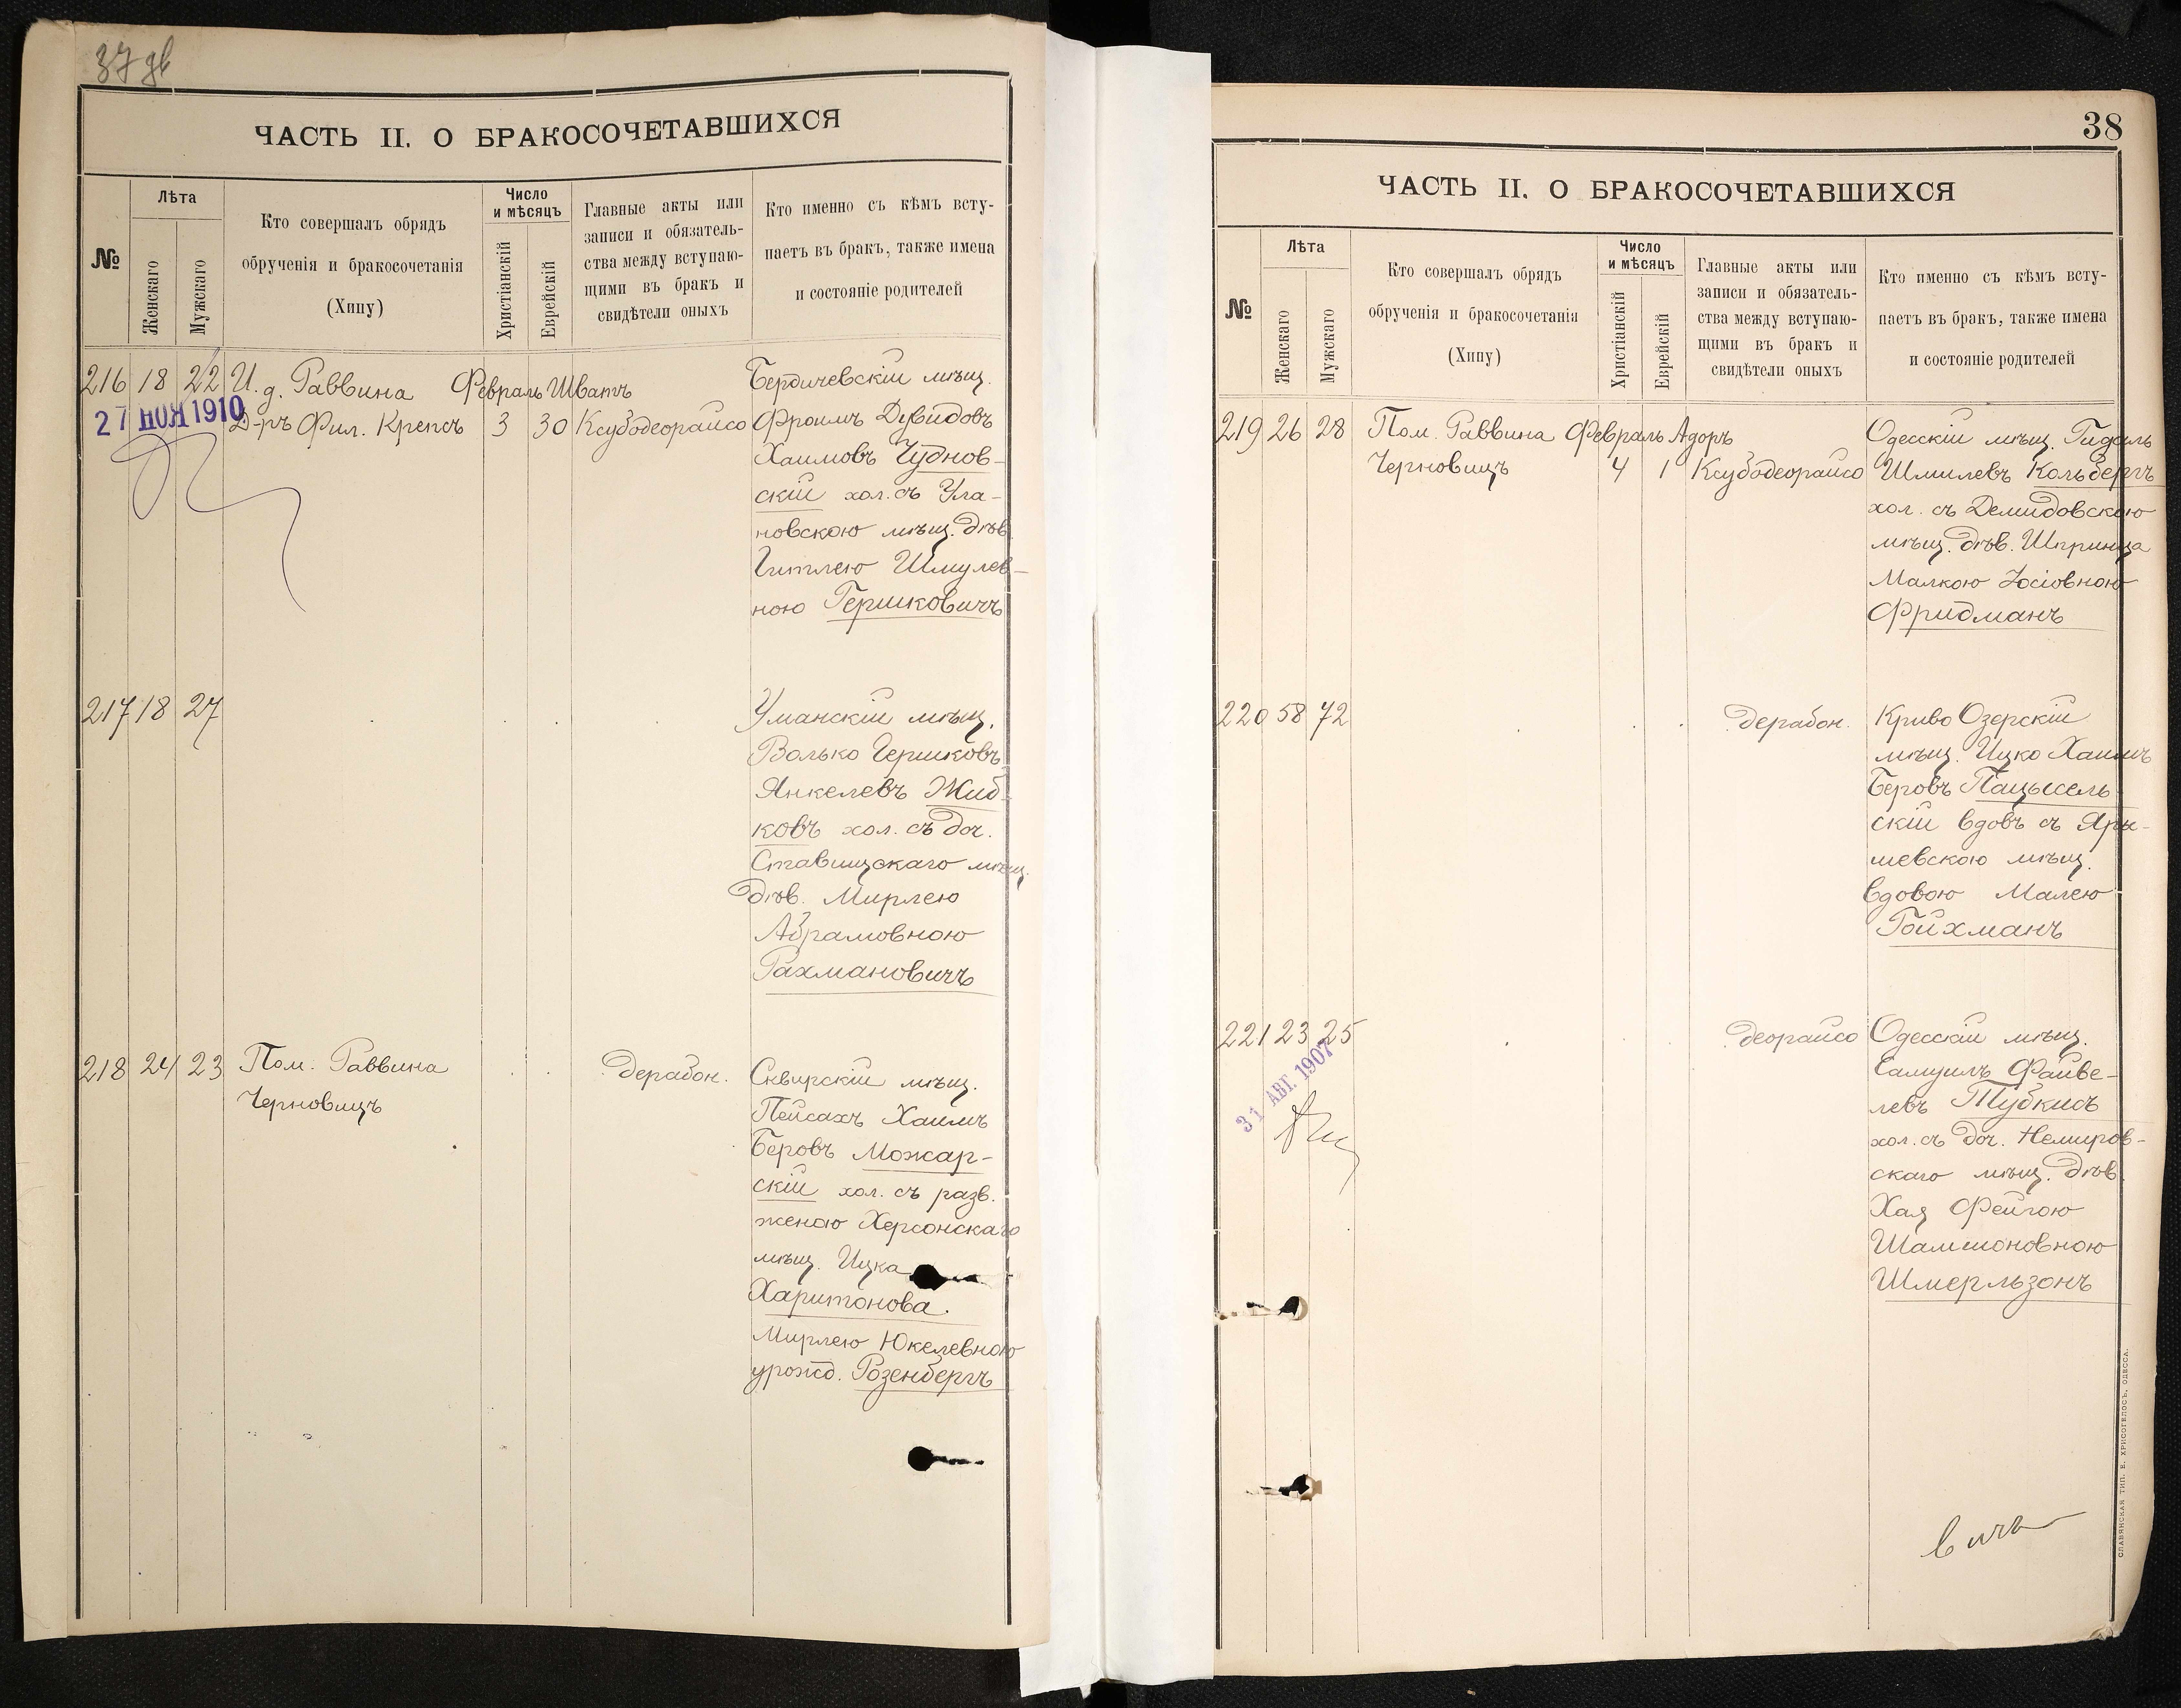 37 дв
ЧАСТЬ II. О БРАКОСОЧЕТАВШИХСЯ
№
Лѣта
Женскаго
Мужскаго
Кто совершалъ обрядъ
обрученія и бракосочетанія
(Хипу)
Число
и мѣсяцъ
Христіанскій
Еврейскій
Главные акты или
записи и обязатель-
ства между вступаю-
щими въ бракъ и
свидѣтели оныхъ
Кто именно съ кѣмъ всту-
паетъ въ бракъ, также имена
и состояніе родителей
216 18 22 И. д. Раввина Февраль Шватъ
27 НОЯ 1910
Д-ръ Фил. Крепсъ 3 30 Ксубодеорайсо
Бердичевскій мѣщ.
Фроимъ Дувидовъ
Хаимовъ Чуднов-
скій хол. съ Ула-
новскою мѣщ. дѣв.
Гитлею Шмулев-
ною Гершковичъ
217 18 27
Уманскій мѣщ.
Волько Гершковъ
Янкелевъ Жид-
ковъ хол. съ доч.
Ставищскаго мѣщ.
дѣв. Мирлею
Абрамовною
Рахмановичъ
218 24 23 Пом. Раввина
Черновицъ
дерабон.
Сквирскій мѣщ.
Пейсахъ Хаимъ
Беровъ Можар-
скій хол. съ разв.
женою Херсонскаго
мѣщ. Ицка
Харитонова.
Мирлею Юкелевною
урожд. Розенбергъ
38
ЧАСТЬ II. О БРАКОСОЧЕТАВШИХСЯ
№
Лѣта
Женскаго
Мужскаго
Кто совершалъ обрядъ
обрученія и бракосочетанія
(Хипу)
Число
и мѣсяцъ
Христіанскій
Еврейскій
Главные акты или
записи и обязатель-
ства между вступаю-
щими въ бракъ и
свидѣтели оныхъ
Кто именно съ кѣмъ всту-
паетъ въ бракъ, также имена
и состояніе родителей
219 26 28 Пом. Раввина Февраль Адоръ
Черновицъ 4 1 Ксубодеорайсо
Одесскій мѣщ. Гидаль
Шмилевъ Кольбергъ
хол. съ Демидовскою
мѣщ. дѣв. Шпринца
Малкою Іосіовною
Фридманъ
220 58 72
дерабон.
Криво Озерскій
мѣщ. Ицко Хаимъ
Беровъ Пацысель-
скій вдовъ съ Яры-
шевскою мѣщ.
вдовою Малею
Ройхманъ
221 23 25
31 АВГ. 1907
деорайсо
Одесскій мѣщ.
Самуилъ Файве-
левъ Тубкисъ
хол. съ доч. Немиров-
скаго мѣщ. дѣв.
Хая Фейгою
Шамшоновною
Шмерльзонъ
СЛАВЯНСКАЯ ТИП. Е. ХРИСОГЕЛОСЪ, ОДЕССА.